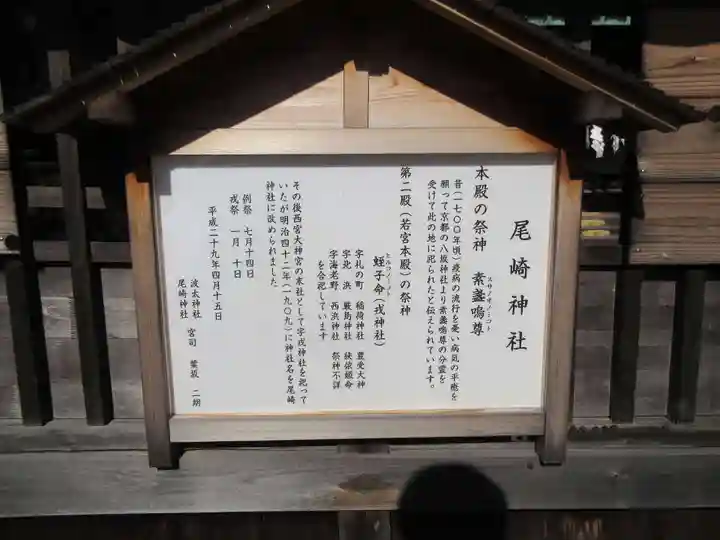 尾崎神社
本殿の祭神 素盞嗚尊
スサノオノミコト
昔(一七〇〇年頃)疫病の流行を憂い病気の平癒を
願って京都の八坂神社より素盞嗚尊の分霊を
受けて此の地に祀られたと伝えられています。
第二殿(若宮本殿)の祭神
ヒルコノミコト
蛭子命(戎神社)
字札の町 稲荷神社 豊受大神
字北浜 厳島神社 狭依姫命
字海老野 西浜神社 祭神不詳
を合祀しています
その後西宮大神宮の末社として字戎神社を祀って
いたが明治四十二年(一九〇九)に神社名を尾崎
神社に改められました
例祭 七月十四日
戎祭 一月 十日
平成二十九年四月十五日
波太神社 宮司 二朗
尾崎神社